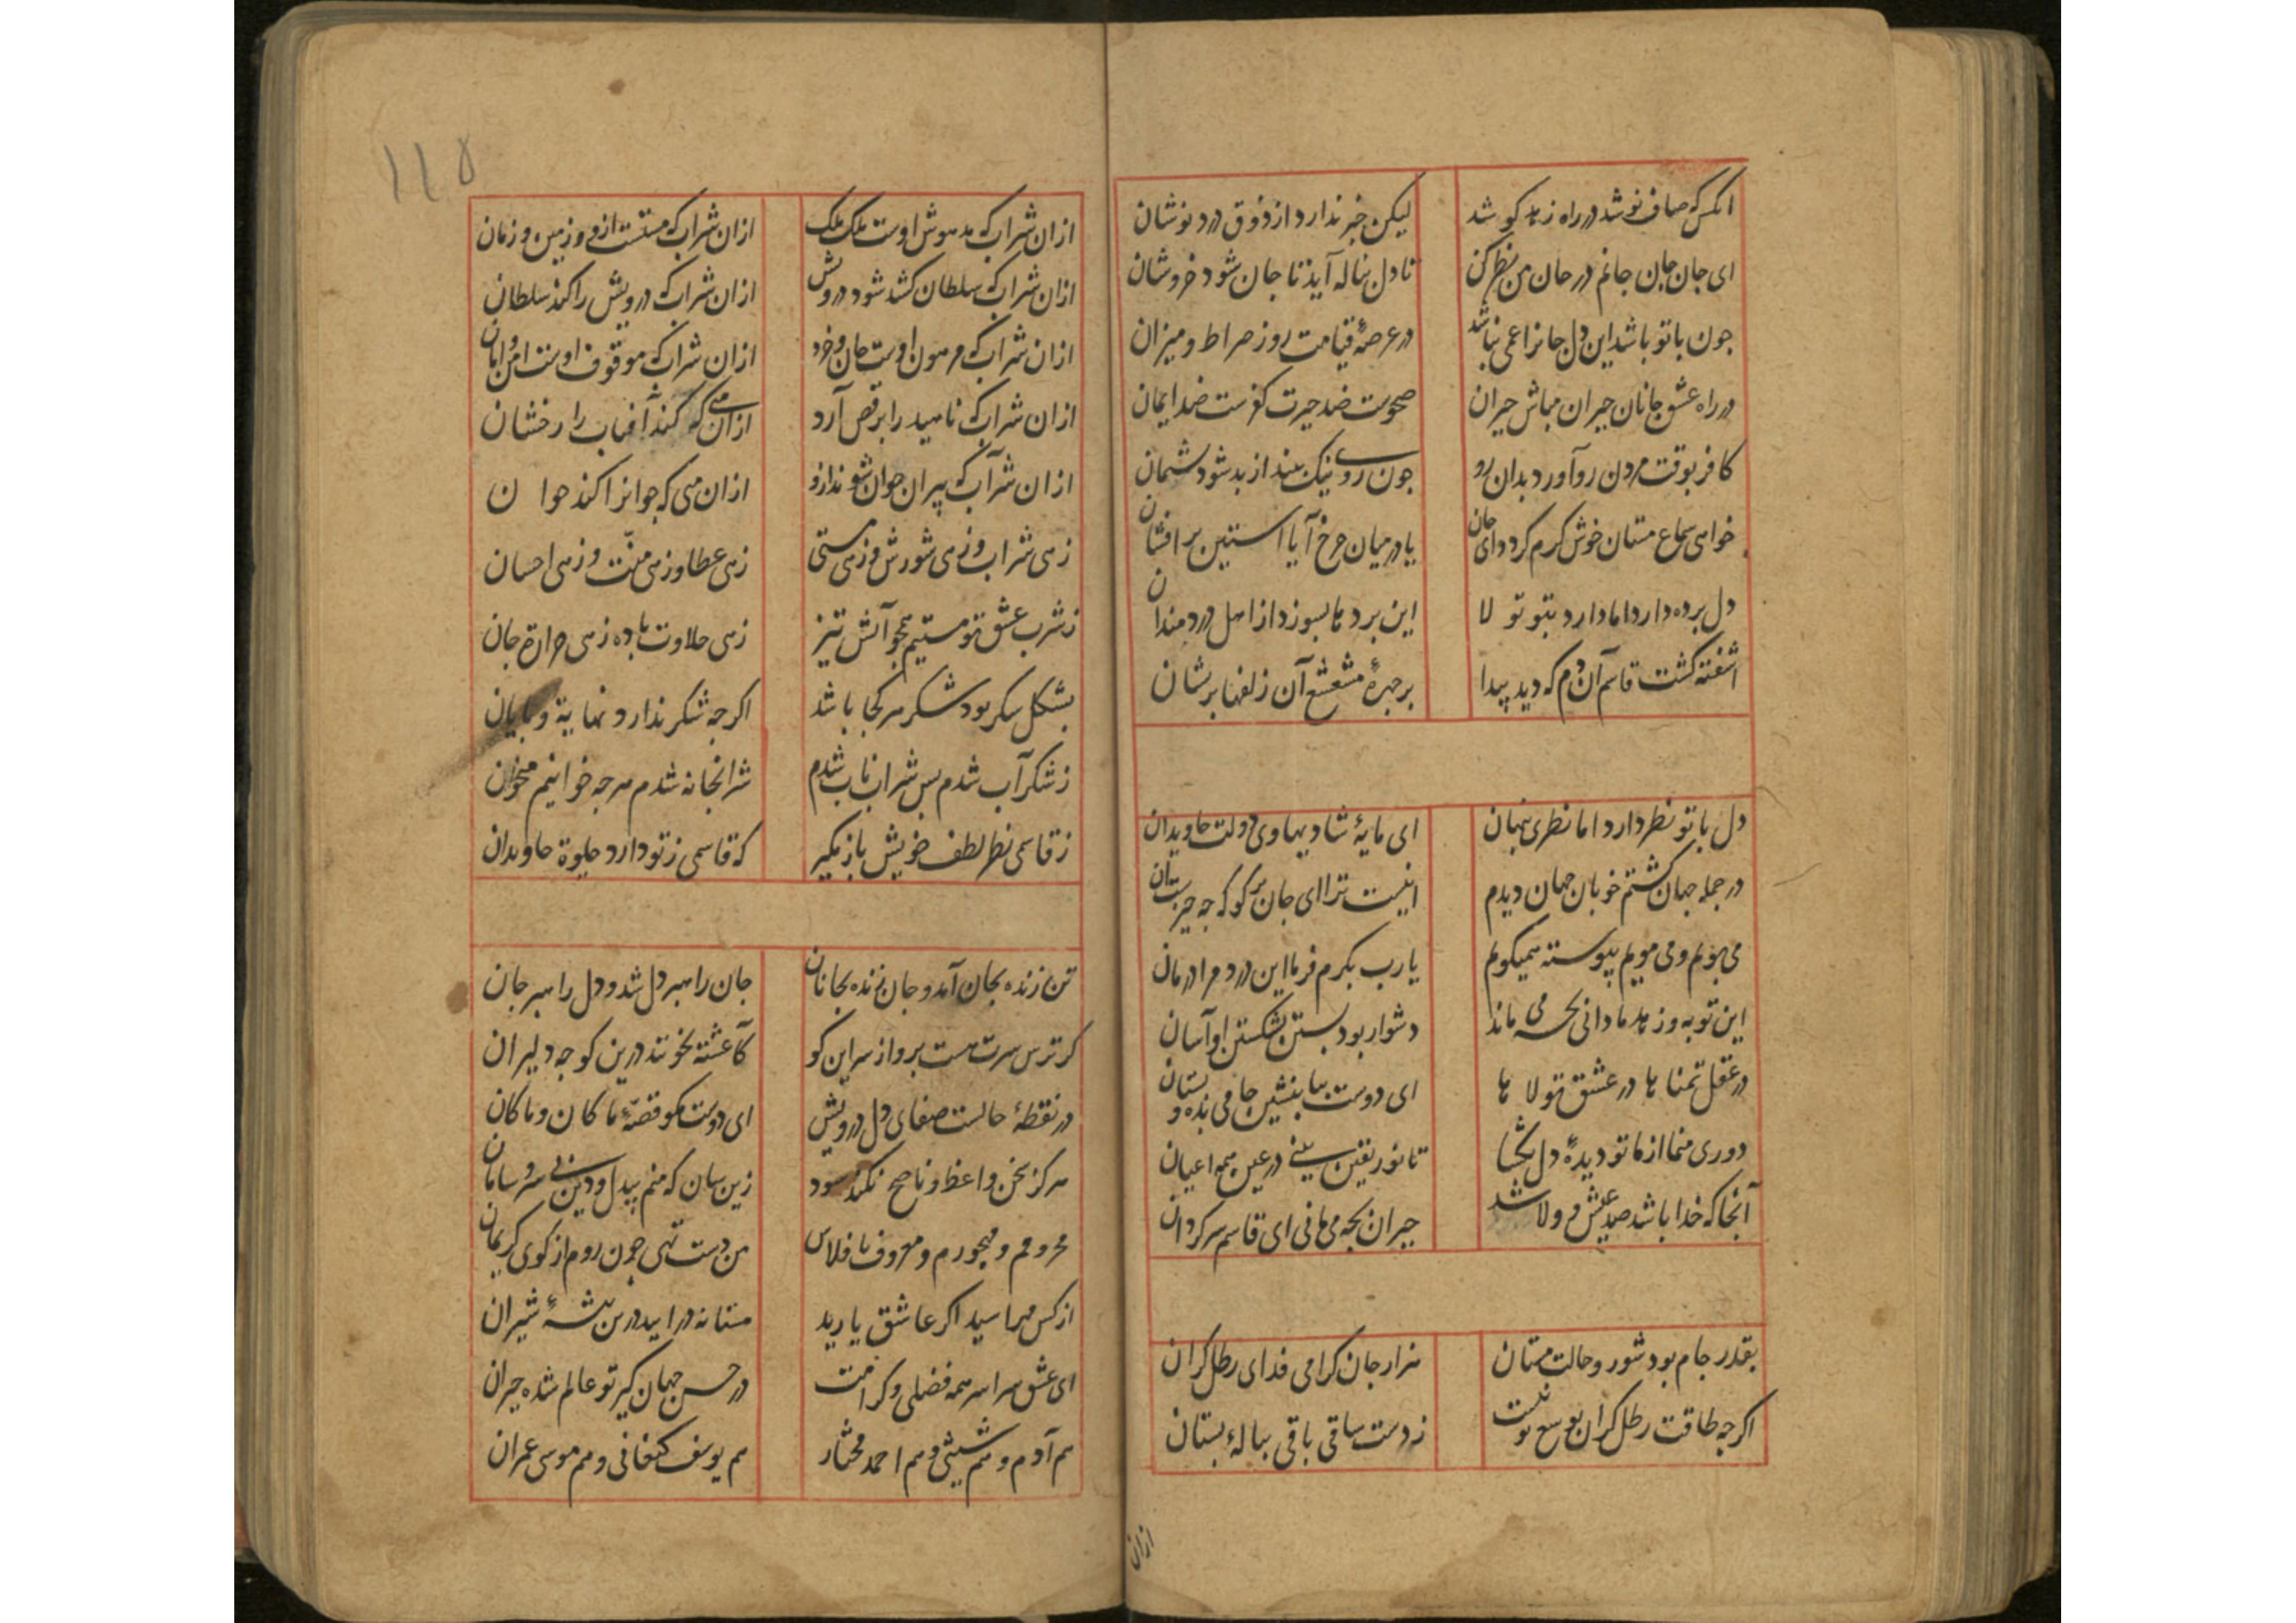 انکس که صاف نوشد در راه زهد کوشد لیکن خبر ندارد از ذوق درد نوشان
ای جان جان جانم در جان من نظر کن تا دل بناله آید تا جان شود خروشان
جون با تو باشد این دل جانرا غمی نباشد در عرصهٔ قیامت روز صراط و میزان
در راه عشق جانان حیران مباش حیران صحوست ضد حیرت کفرست ضد ایمان
کافر بوقت مردن رو آورد بدان رو جون روی نیک بیند از بد شود بشیمان
خواهی سماع مستان خوش کرم کرد دای جان یا در میان جرخ آ یا استین برافشان
دل برده دارد اما دارد بتو تولا این برده‌ها بسوزد از اهل دردمندان
اشفته کشت قاسم آن دم که دید پیدا بر جهرهٔ مشعشع آن زلفها بریشان
دل با تو نظر دارد اما نظری پنهان ای مایهٔ شادیها وی دولت جاویدان
در جمله جهان کشتم خوبان جهان دیدم انیست ترا ای جان بر کو که جه جیزست آن
می‌بویم و می‌مویم پیوسته همیکویم یا رب بکرم فرما این درد مرا درمان
این توبه و زهد ما دانی بجه می‌ماند دشوار بود بستن بشکستن او آسان
در عقل تمناها در عشق تولاها ای دوست بیا بنشین جامی بده و بستان
دوری منما از ما تو دیدهٔ دل بکشا تا نور یقین بینی در عین همه اعیان
آنجا که خدا باشد صد عیش و ولا باشد حیران بجه می‌مانی ای قاسم سرکردان
بقدر جام بود شور و حالت مستان هزار جان کرامی فدای رطل کران
اکرجه طاقت رطل کران بوسع تو نیست ز دست ساقی باقی بیالهٔ بستان
ازان
۱۱۵
ازان شراب که مدهوش اوست ملک ملک ازان شراب که مستست ازو زمین و زمان
ازان شراب که سلطان کشد شود درویش ازان شراب که درویش را کند سلطان
ازان شراب که مرهون اوست جان و خرد ازان شراب که موقوف اوست امن و امان
ازان شراب که ناهید را برقص آرد ازان می که کند آفتاب را رخشان
ازان شراب که پیران جوان شوند ازو ازان می که جوانرا کند جوا ن
زهی شراب و زهی شورش و زهی مستی زهی عطا و زهی منّت و زهی احسان
ز شرب عشق تو مستیم همجو آتش تیز زهی حلاوت باده زهی حرارة جان
بشکل سکر بود شکر هر کجا باشد اکرجه شکر ندارد نهایة و بایان
ز شکر آب شدم بس شراب ناب شدم شرابخانه شدم هرجه خوانیم میخوان
ز قاسمی نظر لطف خویش باز مکیر که قاسمی ز تو دارد جلوة جاویدان
تن زنده بجان آمد و جان زنده بجانان جان راهبر دل شد و دل راهبر جان
کر ترس سرت هست برو از سر این کو کآغشته بخونند درین کوجه دلیران
در نقطهٔ حالست صفای دل درویش ای دوست مکو قصّهٔ ما کان و ما کان
هرکز سخن واعظ و ناصح نکند سود زین سان که منم بیدل و دین بی سر و سامان
محرومم و مهجورم و معروف بافلاس من دست تهی جون روم از کوی کریمان
از کس مهراسید اکر عاشق یارید مستانه در ایید درین بیشهٔ شیران
ای عشق سراسر همه فضلی و کرامت در حسن جهان کیر تو عالم شده حیران
هم آدم و هم شیثی و هم احمد مختار هم یوسف کنعانی و هم موسی عمران